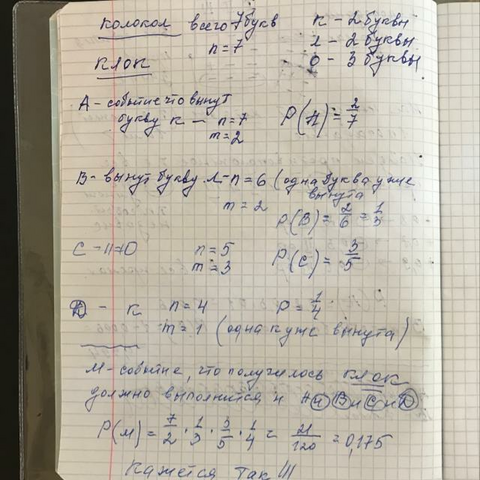 колокол всего 7 букв к - 2 буквы
n = 7 л - 2 буквы
клок о - 3 буквы
А - событие что вынут
букву к - n = 7 P(A) = 2/7
m = 2
В - вынут букву л - n = 6 (одна буква уже
вынута
m = 2 P(B) = 2/6 = 1/3
С - // → О n = 5 P(C) = 3/5
m = 3
D - к n = 4 P = 1/4
m = 1 (одна к уже вынута)
М - событие, что получилось клок
должно выполнится и А и В и С и D
P(M) = 7/2 · 1/3 · 3/5 · 1/4 = 21/120 = 0,175
Кажется так !!!